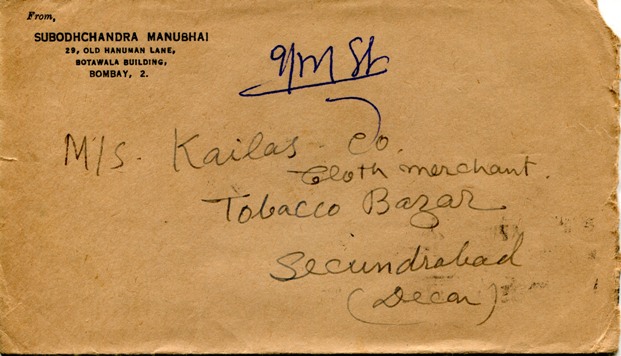 From,
SUBODHCHANDRA MANUBHAI
29, OLD HANUMAN LANE,
BOTAWALA BUILDING,
BOMBAY, 2.
M/S. Kailas Co.
Cloth merchant.
Tobacco Bazar
Secundrabad
(Decan)